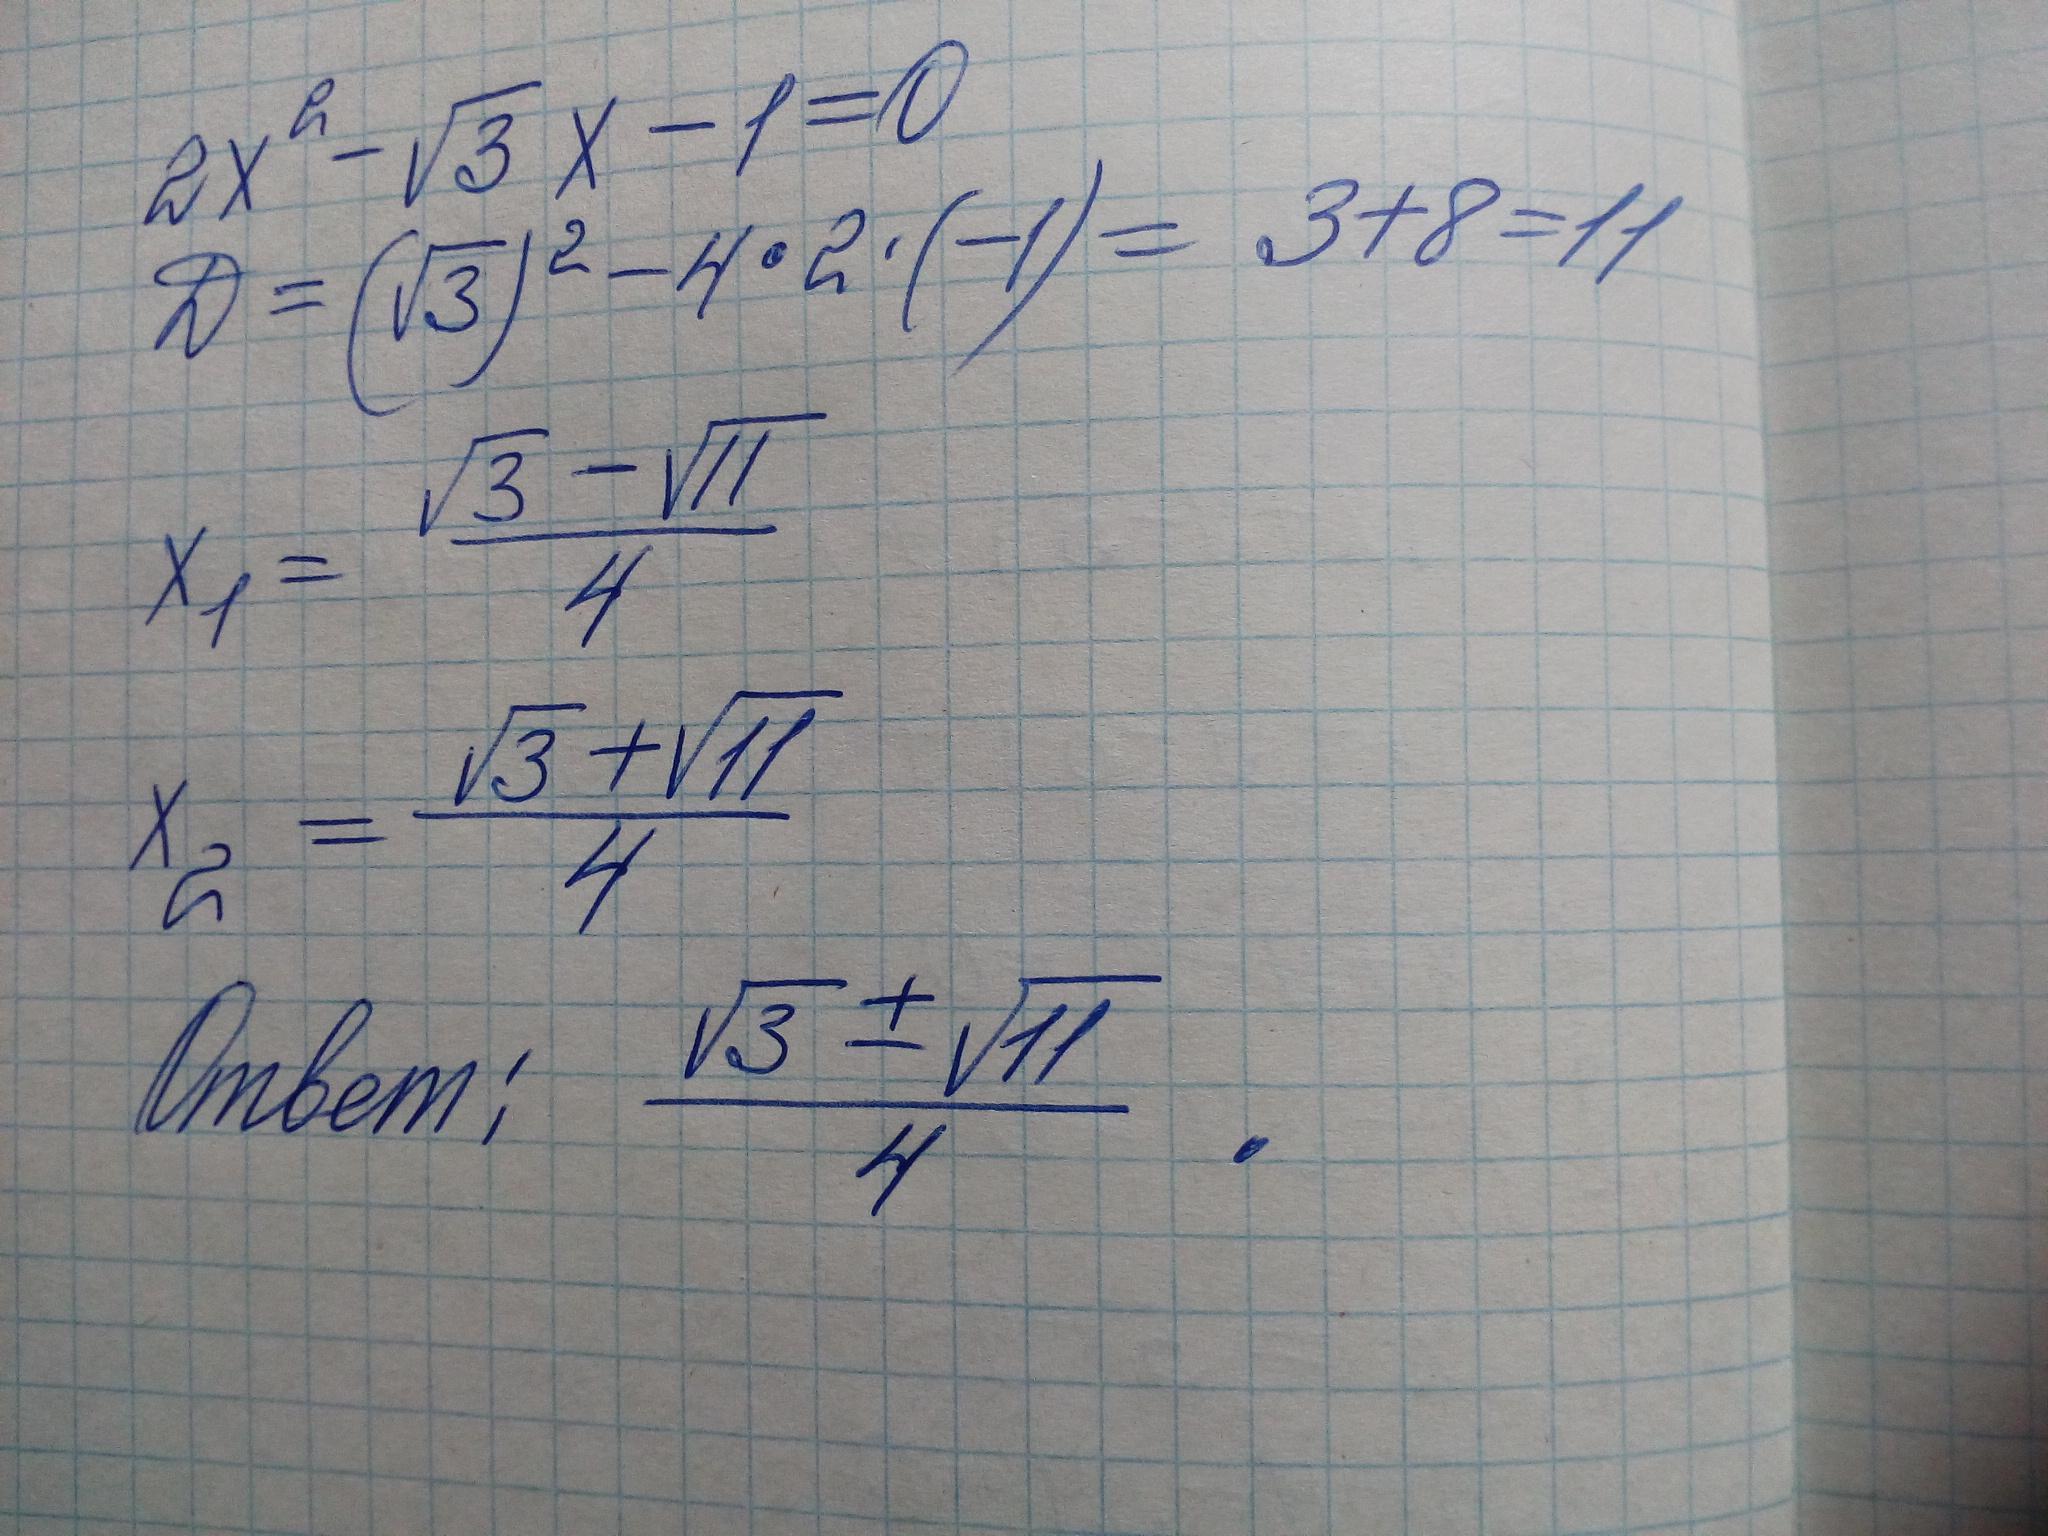 2x² - √3 x - 1 = 0
D = (√3)² - 4 · 2 · (-1) = 3 + 8 = 11
x₁ = (√3 - √11)/4
x₂ = (√3 + √11)/4
Ответ: (√3 ± √11)/4 .